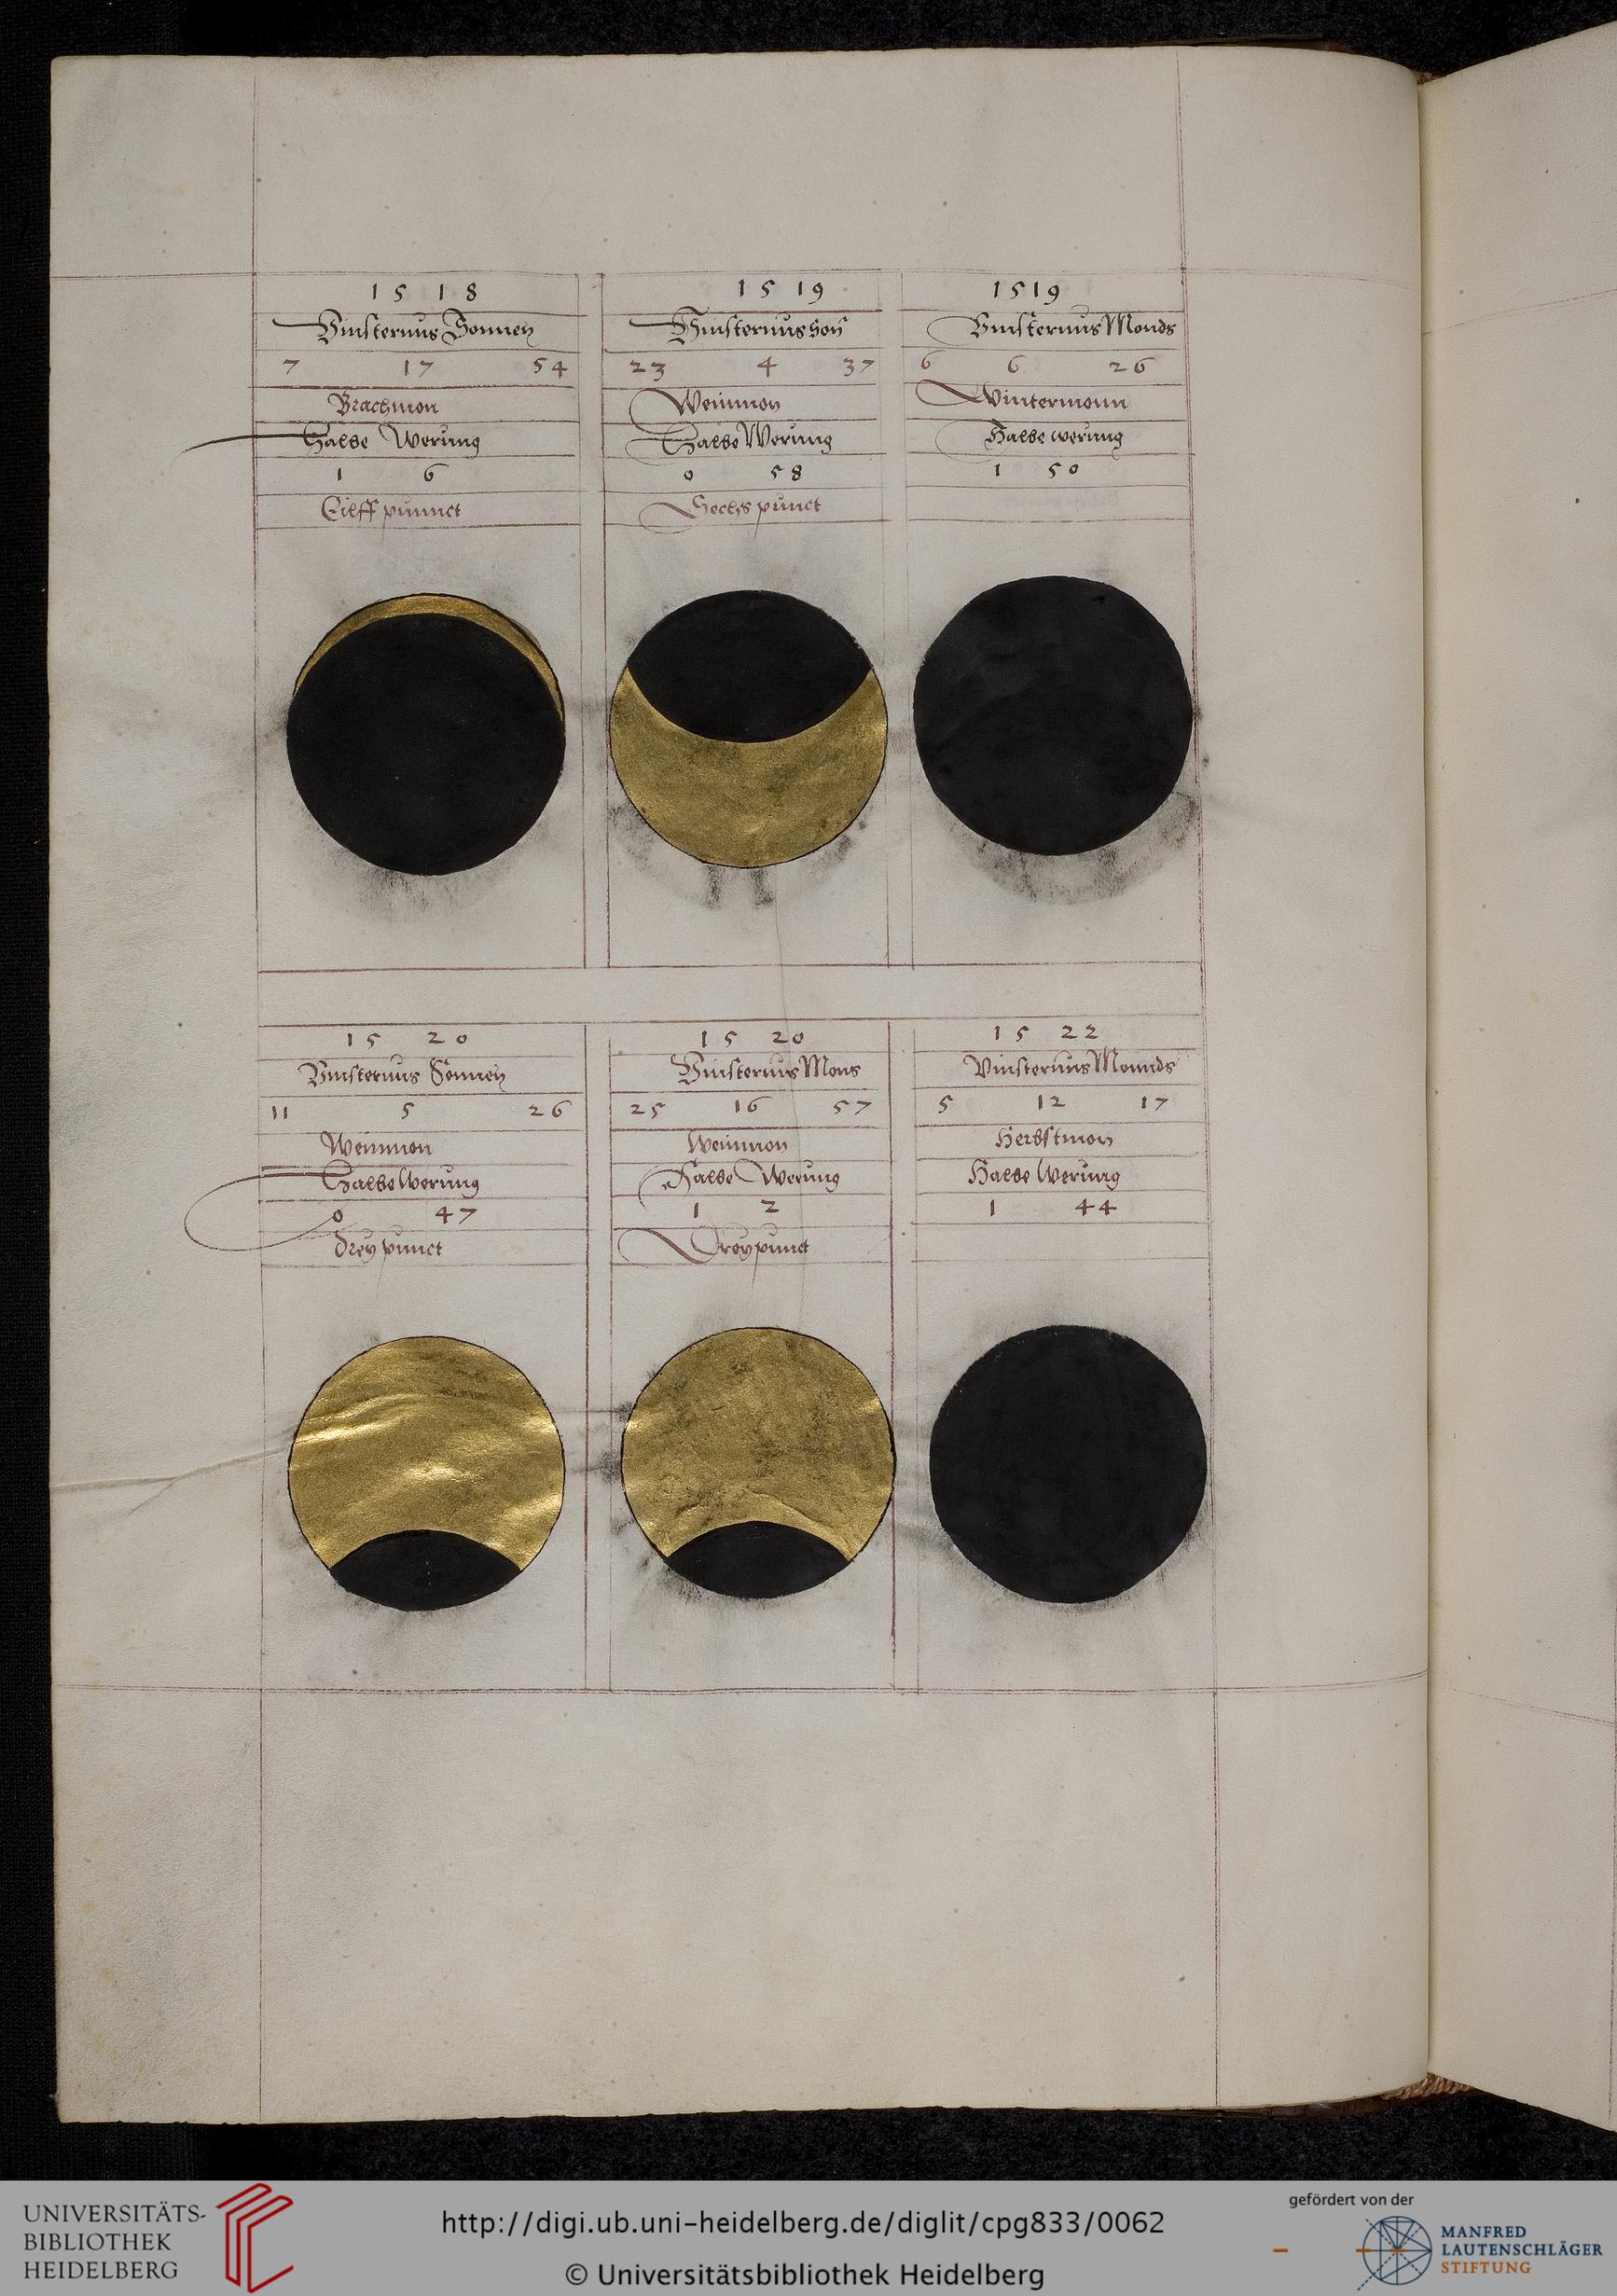 1518
Vinsternus Sonnen
7 17 54
Brachmon
Halbe Werung
1 6
Eilff punnct
1519
Vinsternus Son
23 4 37
Weinmon
Halbe Werung
0 58
Sechs punct
1519
Vinsternus Monds
6 6 26
Wintermonn
Halbe werung
1 50
15 20
Vinsternus Sonnen
11 5 26
Weinmon
Halbe Werung
0 47
Drey punct
15 20
Vinsternus Mons
25 16 57
Weinmon
Halbe Werung
1 2
Drey punct
15 22
Vinsternus Monnds
5 12 17
Herbstmon
Halbe Werung
1 44
UNIVERSITÄTS-
BIBLIOTHEK
HEIDELBERG
http://digi.ub.uni-heidelberg.de/diglit/cpg833/0062
© Universitätsbibliothek Heidelberg
gefördert von der
MANFRED
LAUTENSCHLÄGER
STIFTUNG